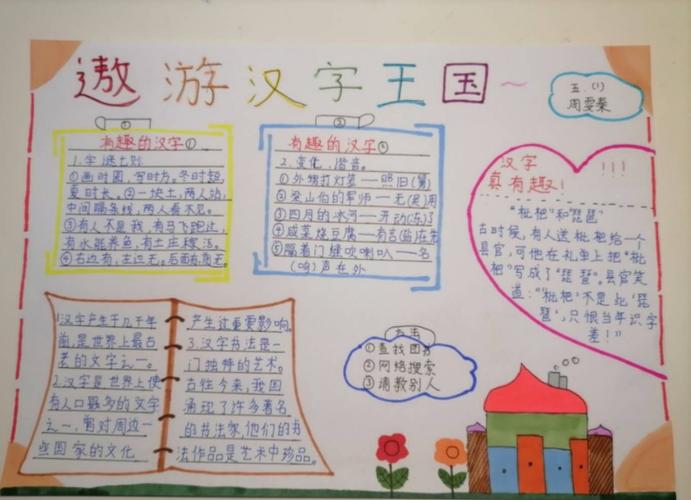 遨游汉字王国~
五.(1)
周雯秦
①
有趣的汉字①
1.字谜七则
①画时圆,写时方,冬时短,
夏时长。②一块土,两人站,
中间隔条线,两人看不见。
③有人不是我,有马飞跑过,
有水能养鱼,有土庄稼活。
④右边有,左边无。后面有,前无。
②
有趣的汉字②
2.变化、谐音。
①外甥打灯笼——照旧(舅)
②梁山伯的军师——无(吴)用
③四月的冰河——开动(冻)了
④咸菜烧豆腐——有言(盐)在先
⑤隔着门缝吹喇叭——名
(鸣)声在外
汉字
真有趣!
!!!
"枇杷"和"琵琶"
古时候,有人送枇杷给一个
县官,可他在礼单上把"枇
杷"写成了"琵琶"。县官笑
道:"'枇杷'不是此'琵
琶',只恨当年识字
差!"
1.汉字产生于几千年
前,是世界上最古
老的文字之一。
2.汉字是世界上使
有人口最多的文字
之一,曾对周边一
些国家的文化
产生过重要影响。
3.汉字书法是一
门独特的艺术。
古往今来,我国
涌现了许多著名
的书法家,他们的书
法作品是艺术中珍品。
办法
①查找图书
②网络搜索
③请教别人